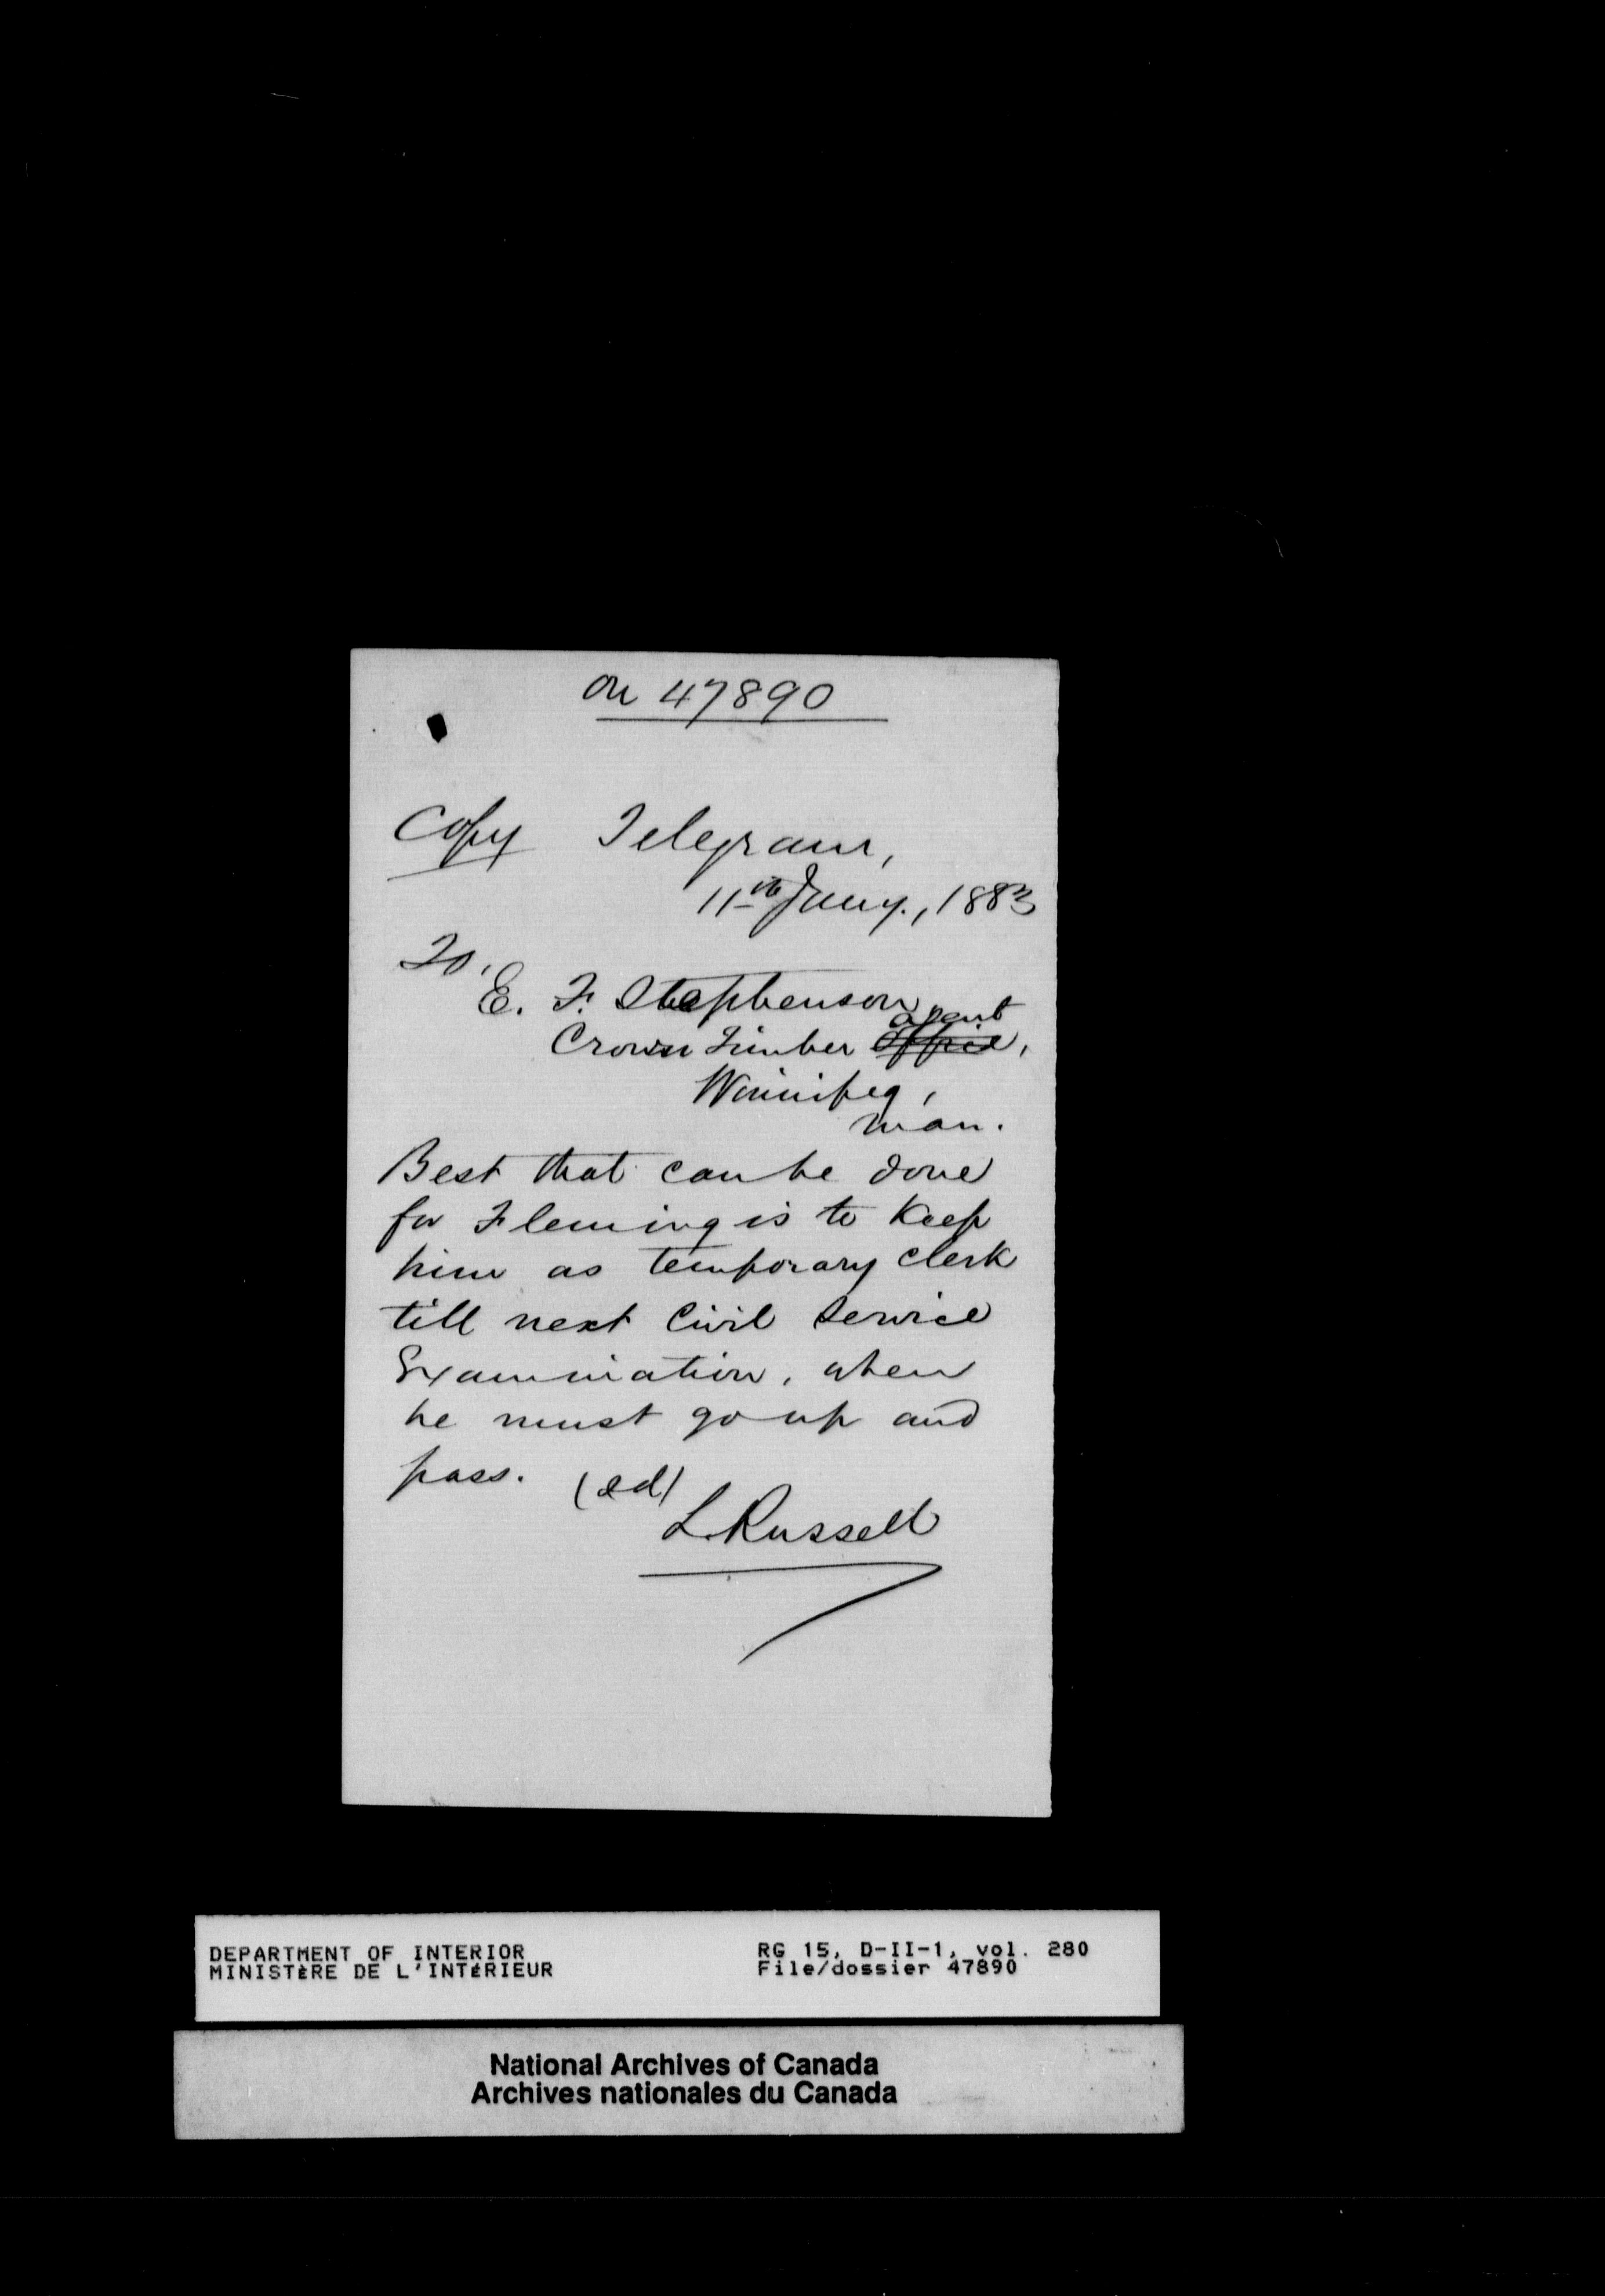 On 47890
Copy Telegram,
11th Jany., 1883
To,
E. F. Stephenson
agent
Crown Timber Office,
Winnipeg,
Man.
Best that can be done
for Fleming is to keep
him as temporary clerk
till next Civil Service
Examination, when
he must go up and
pass. (sd)
L. Russell
DEPARTMENT OF INTERIOR
MINISTÈRE DE L'INTÉRIEUR
RG 15, D-II-1, vol. 280
File/dossier 47890
National Archives of Canada
Archives nationales du Canada